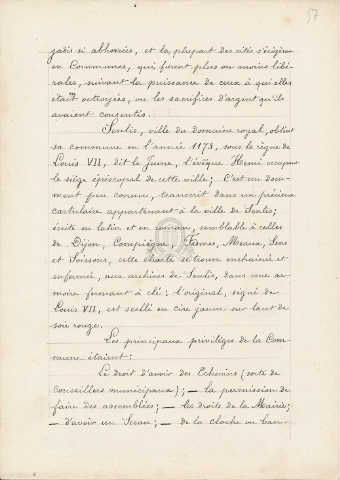 57
jadis si abhorrées, et la plupart des cités s'érigèrent
en Communes, qui furent plus ou moins libé-
rales, suivant la puissance de ceux à qui elles
étaient extorquées, ou les sacrifices d'argent qu'ils
avaient consentis.
Senlis, ville du domaine royal, obtint
sa commune en l'année 1173, sous le règne de
Louis VII, dit le Jeune, l'évêque Henri occupant
le siège épiscopal de cette ville; C'est un docu-
ment peu connu, transcrit dans un précieux
cartulaire appartenant à la ville de Senlis;
écrite en latin et en roman, semblable à celles
de Dijon, Compiègne, Fismes, Meaux, Sens
et Soissons, cette charte se trouve enchaînée et
enfermée, aux archives de Senlis, dans une ar-
moire fermant à clé; l'original, signé de
Louis VII, est scellé en cire jaune sur lacet de
soie rouge.
Les principaux privilèges de la Com-
mune étaient:
Le droit d'avoir des Echevins (sorte de
Conseillers municipaux); — la permission de
faire des assemblées; — les droits de la Mairie;
— d'avoir un Sceau; — de la cloche ou ban-